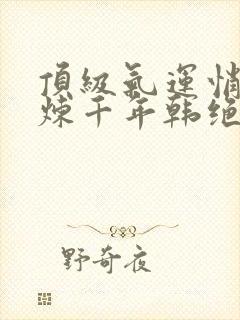 頂級氣運悄
炼千年韩绝
野奇夜